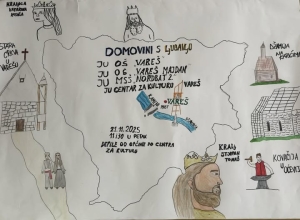 KRALJICA
KATARINA
DOMOVINI S LJUBAVLJU
JU OŠ VAREŠ
JU OŠ VAREŠ MAJDAN
JU MSŠ NORDBAT 2
JU CENTAR ZA KULTURU VAREŠ
STARA
CRKVA U
VAREŠU
DŽAMIJA
VAREŠ
21.11.2025
11:30 U PETAK
DEFILE OD OPĆINE DO CENTRA
ZA KULTURU
KRALJ
STJEPAN
TOMAŠ
KOVAČIJA